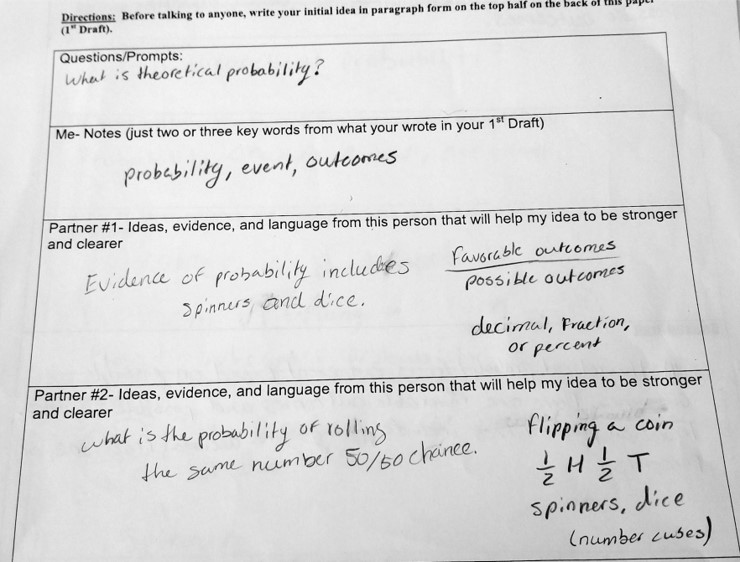 Directions: Before talking to anyone, write your initial idea in paragraph form on the top half on the back of this paper
(1st Draft).
Questions/Prompts:
What is theoretical probability?
Me- Notes (just two or three key words from what your wrote in your 1st Draft)
probability, event, outcomes
Partner #1- Ideas, evidence, and language from this person that will help my idea to be stronger
and clearer
Evidence of probability includes
spinners and dice.
Favorable outcomes
possible outcomes
decimal, Fraction,
or percent
Partner #2- Ideas, evidence, and language from this person that will help my idea to be stronger
and clearer
what is the probability of rolling
the same number 50/50 chance.
flipping a coin
1/2 H 1/2 T
spinners, dice
(number cubes)